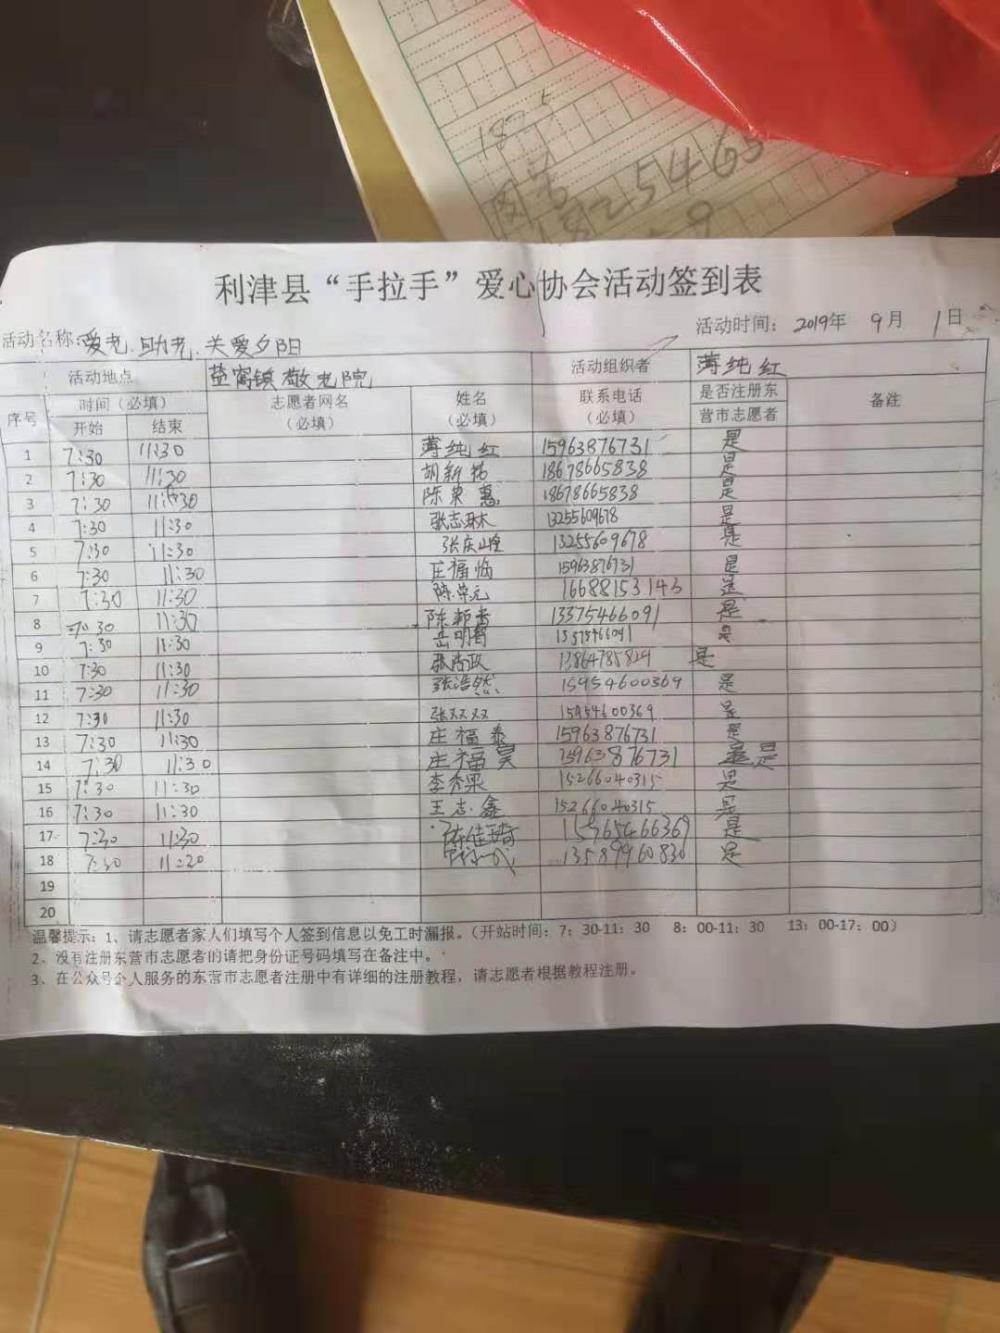 187
5
18254665
9
利津县“手拉手”爱心协会活动签到表
活动时间: 2019年 9月 1日
活动名称:爱老.助老.关爱夕阳
活动地点 盐窝镇敬老院 活动组织者 薄纯红
序号 时间（必填） 志愿者网名（必填） 姓名（必填） 联系电话（必填） 是否注册东营市志愿者 备注
开始 结束
1 7:30 11:30 薄纯红 15963876731 是
2 7:30 11:30 胡新 18678665838 是
3 7:30 11:30 陈 惠 18678665838 是
4 7:30 11:30 张志 13255609678 是
5 7:30 11:30 张庆 13255609678 是
6 7:30 11:30 庄福 15963876731 是
7 7:30 11:30 陈 元 16688153143 是
8 7:30 11:30 陈 13375466091 是
9 7:30 11:30 岳明 是
10 7:30 11:30 张 政 是
11 7:30 11:30 张浩然 15954600369 是
12 7:30 11:30 张双双 15954600369 是
13 7:30 11:30 庄福泰 15963876731 是
14 7:30 11:30 庄福昊 15963876731 是
15 7:30 11:30 李秀 15266040315 是
16 7:30 11:30 王志鑫 15266040315 是
17 7:30 11:30 陈佳琦 15965466369 是
18 7:30 11:20 13589960830 是
19
20
温馨提示: 1、请志愿者家人们填写个人签到信息以免工时漏报。（开站时间: 7: 30-11: 30 8: 00-11: 30 13: 00-17: 00）
2、没有注册东营市志愿者的请把身份证号码填写在备注中。
3、在公众号个人服务的东营市志愿者注册中有详细的注册教程，请志愿者根据教程注册。